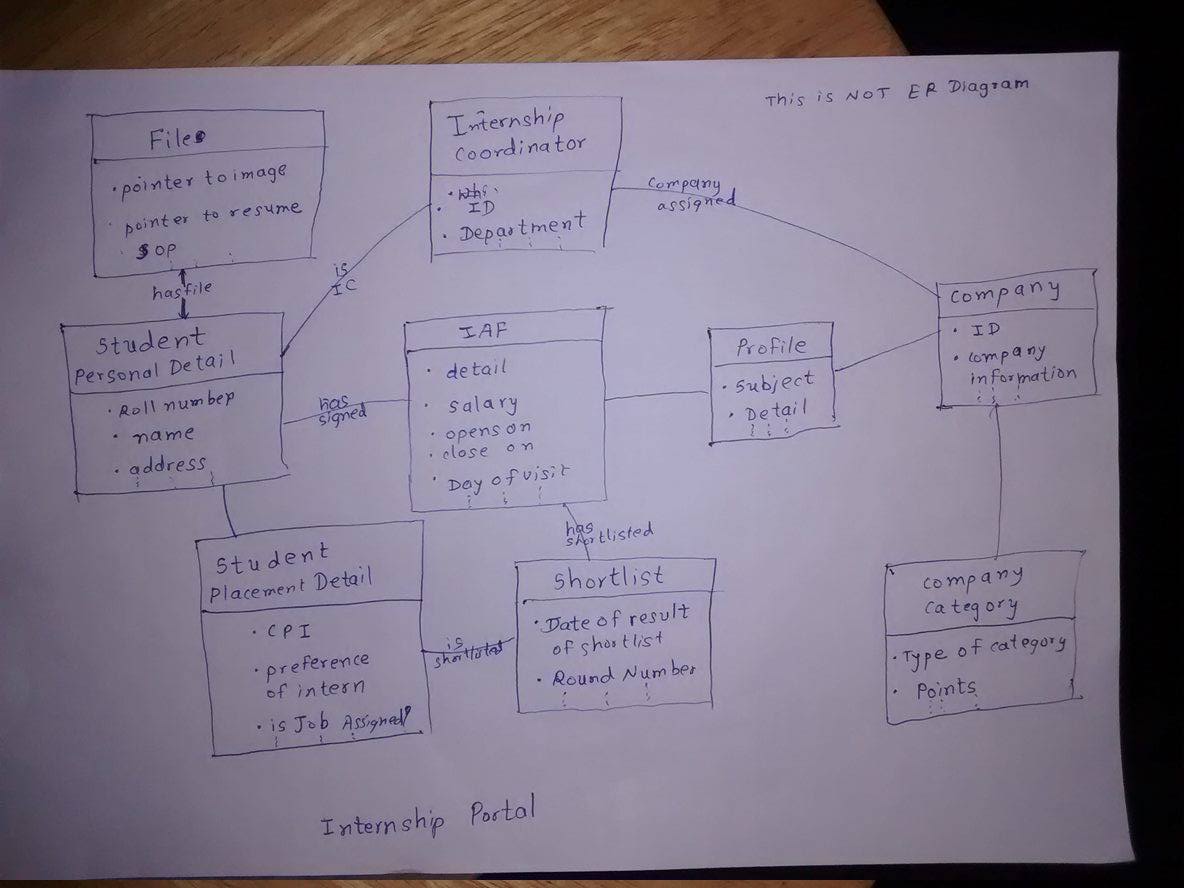 This is NOT ER Diagram
Files
• pointer to image
• pointer to resume
• SOP
Internship
Coordinator
• ID
• Department
Company
assigned
is
IC
has file
Company
• ID
• Company
information
Student
Personal Detail
• Roll number
• name
• address
has
signed
IAF
• detail
• salary
• opens on
• close on
• Day of visit
Profile
• Subject
• Detail
has
shortlisted
Student
Placement Detail
• CPI
• preference
of intern
• is Job Assigned?
is
shortlisted
Shortlist
• Date of result
of shortlist
• Round Number
Company
Category
• Type of category
• Points
Internship Portal